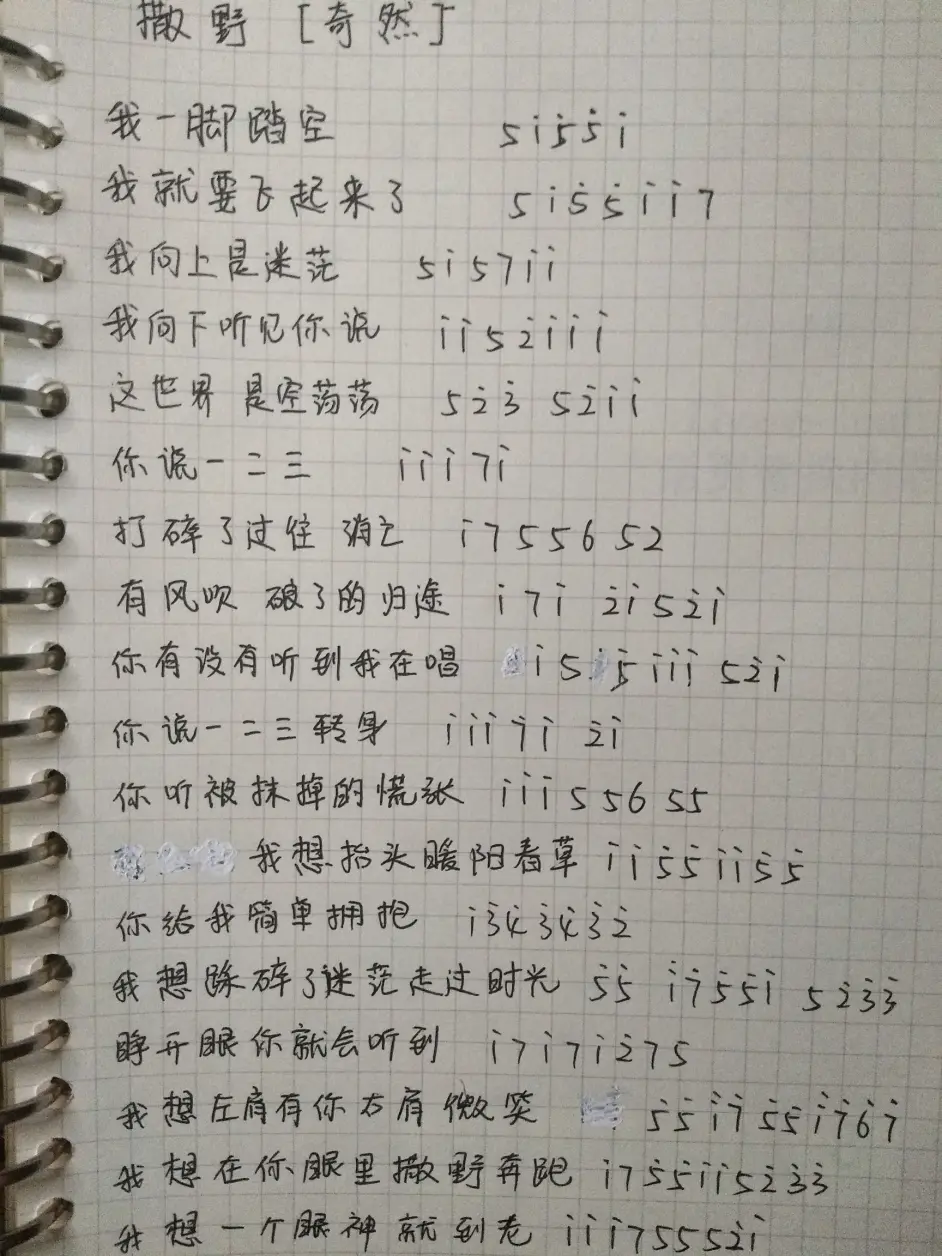 撒野 [奇然]
我一脚踏空 5 i 5̇ 5̇ i
我就要飞起来了 5 i 5̇ 5̇ i i 7
我向上是迷茫 5 i 5 7 i i
我向下听见你说 i i 5 2̇ i i i
这世界 是空荡荡 5 2̇ 3̇ 5 2̇ i i
你说一二三 i i i 7 i
打碎了过往 消亡 i 7 5 5 6 5 2
有风吹 破了的归途 i 7 i 2̇ i 5 2̇ i
你有没有听到我在唱 i 5 5̇ i i i 5 2̇ i
你说一二三转身 i i i 7 i 2̇ i
你听被抹掉的慌张 i i i 5 5 6 5 5
我想抬头暖阳春草 i i 5̇ 5̇ i i 5̇ 5̇
你给我简单拥抱 i 3̇ 4̇ 3̇ 4̇ 3̇ 2̇
我想踩碎了迷茫走过时光 5̇ 5̇ i 7̇ 5̇ 5̇ i 5 2̇ 3̇ 3̇
睁开眼你就会听到 i 7 i 7 i 2̇ 7 5
我想左肩有你右肩微笑 5̇ 5̇ i 7̇ 5̇ 5̇ i 7̇ 6̇ 7̇
我想在你眼里撒野奔跑 i 7 5̇ 5̇ i i 5 2̇ 3̇ 3̇
我想一个眼神就到老 i i i 7 5 5 5 2̇ i